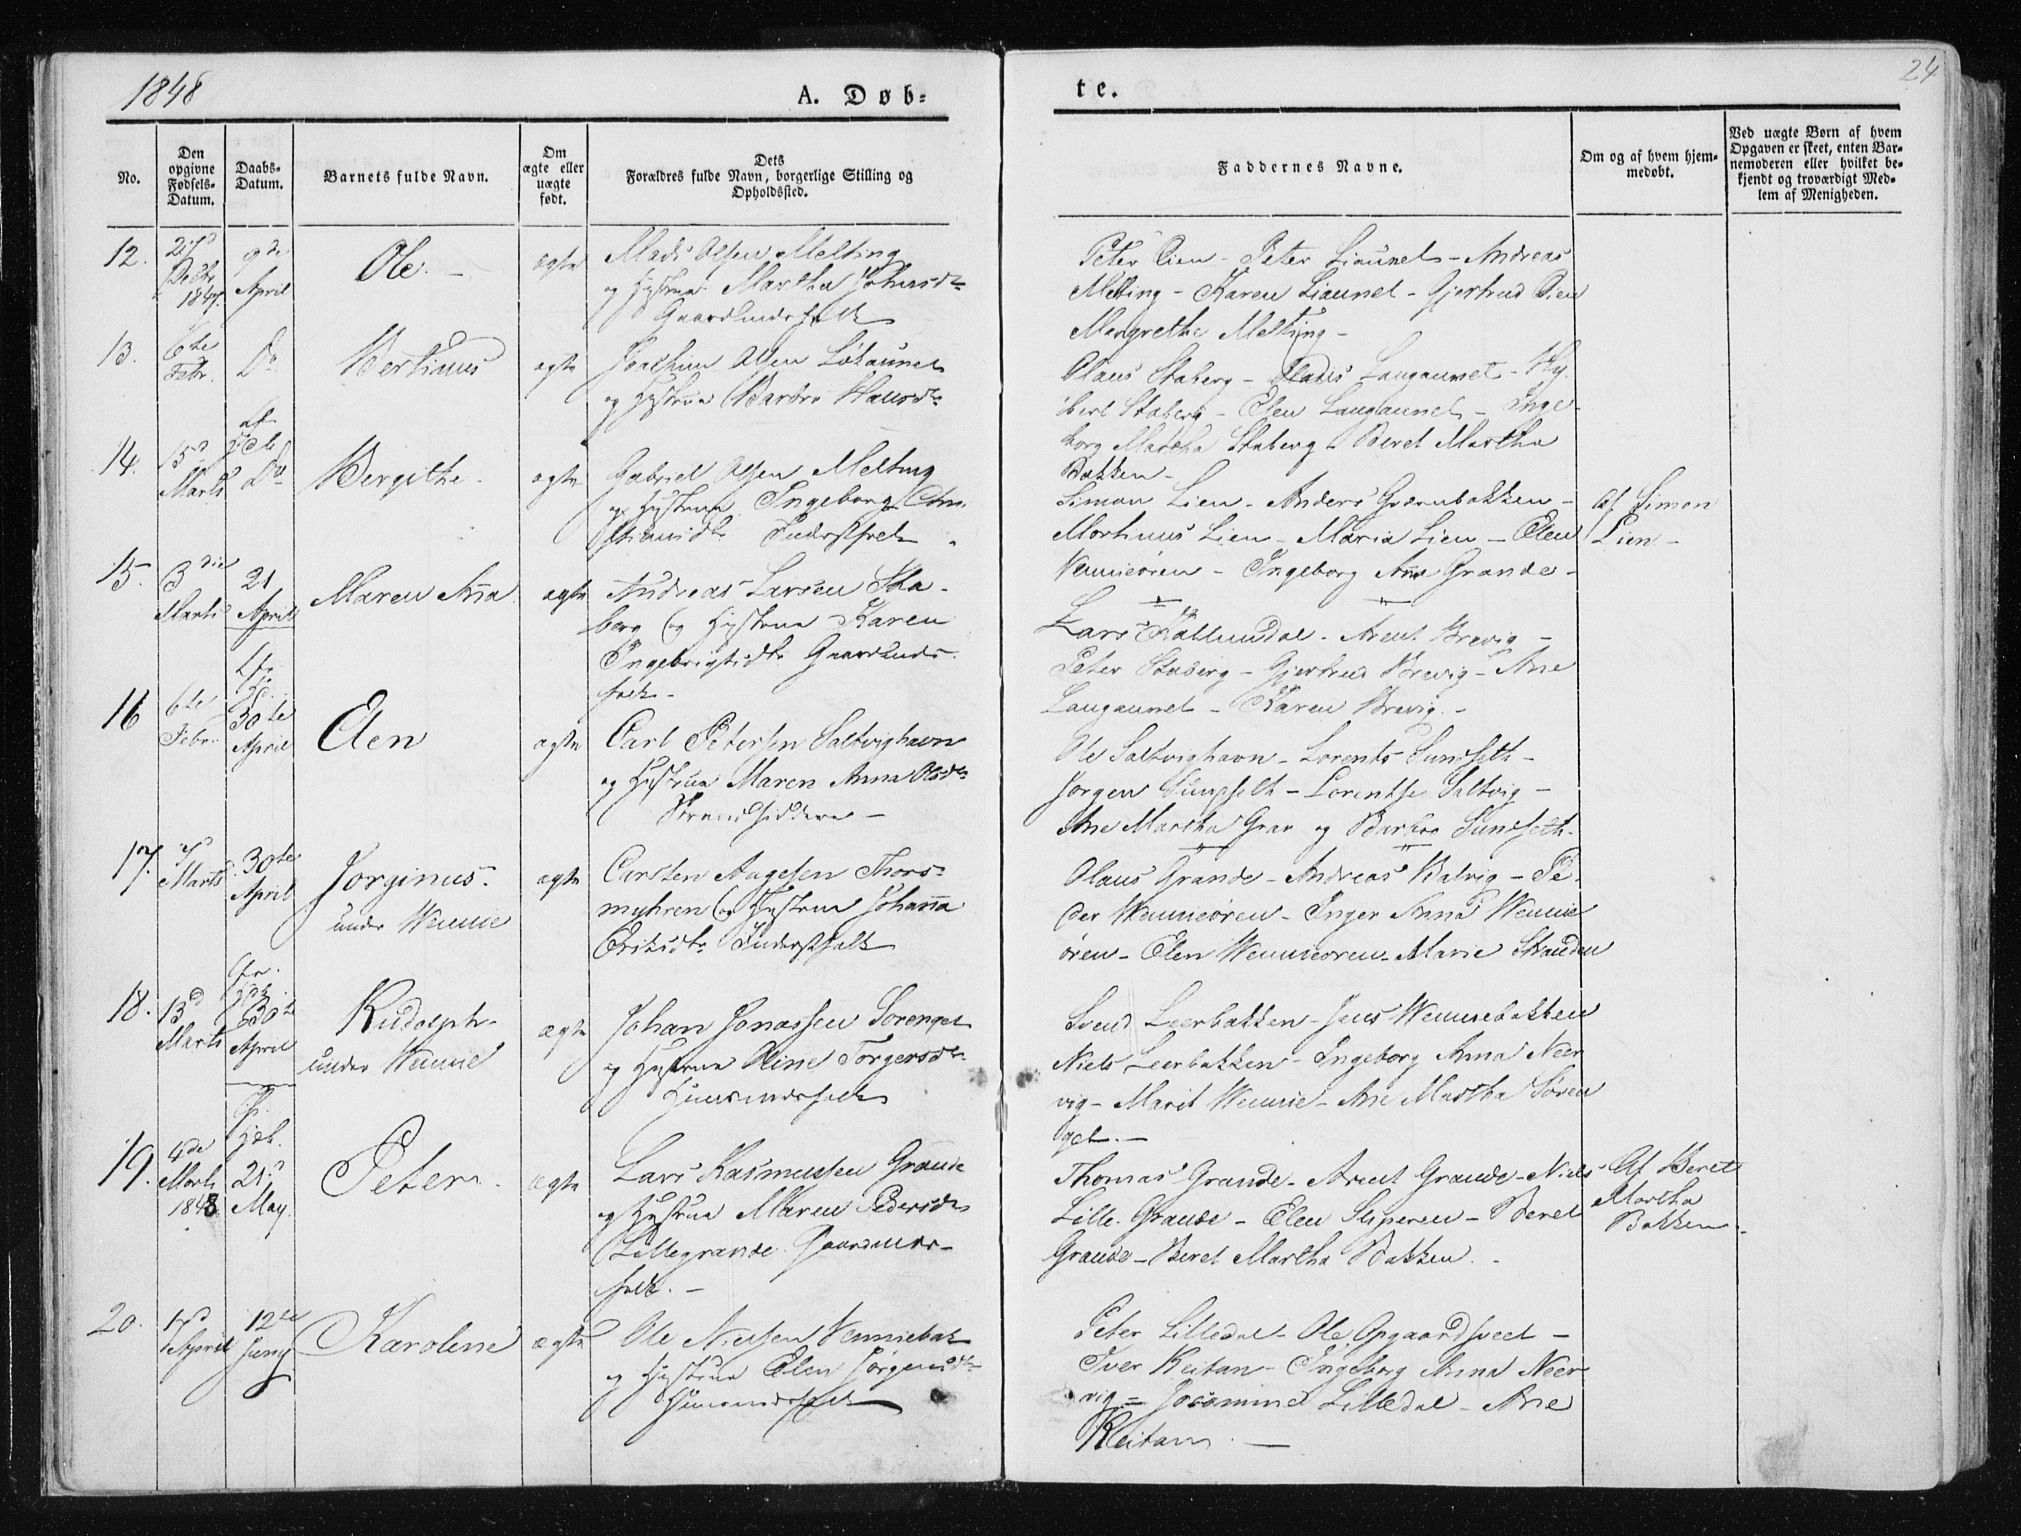 1848
A. Døb=
te.
24
No.
Den opgivne Fødsels-Datum.
Daabs-Datum.
Barnets fulde Navn.
Om ægte eller uægte født.
Dets Forældres fulde Navn, borgerlige Stilling og Opholdssted.
Faddernes Navne.
Om og af hvem hjem-
medøbt.
Ved uægte Børn af hvem
Opgaven er skeet, enten Bar-
nemoderen eller hvilket be-
kjendt og troværdigt Med-
lem af Menigheden.
12.
27d
Decbr
1847.
9de
April
Ole. –
ægte
Mads Olsen Melting
og Hustrue Martha Johnsdr
Gaardmandsfolk
Peter Lien – Peter Liaunet – Andreas
Melting – Karen Liaunet – Gjertrud Lien
Margrethe Melting –
13.
6te
Febr.
Do
Bertinus
ægte
Joachim Olsen Løhaunet
og Hustrue Barbro Hansdr
Olaus Staberg – Mads Langaunet – Hy
bert Staberg – Elen Langaunet – Inge
borg Martha Staberg – Beret Martha
Bakken –
14.
15d
Marts
Do
Bergithe
ægte
Gabriel Olsen Melting
og Hustrue Ingeborg Chri
stiansdr Inderstfolk
Simon Lien – Anders Qvernbakken –
Mortinus Lien – Maria Lien – Elen
Vennieøren – Ingeborg Ana Grande –
Af Simon
Lien –
15.
3die
Marts
21
April
Maren Ana
ægte
Andreas Larsen Sta-
berg og Hustrue Karen
Ingebrigtsdr Gaardmands-
folk –
Lars Kallumdal – Arent Brevig –
Peter Staberg – Gjertrud Brevig – Ane
Langaunet – Karen Brevig –
16
6te
Febr.
30te
April
Elen
ægte
Carl Petersen Saltvighavn
og Hustrue Maren Anna Olsdr
Strandsiddere –
Ole Saltvighavn – Lorents Sundseth –
Jørgen Sundseth – Lorentse Saltvig –
Ane Martha Grav og Barbro Sundseth.
17.
7d
Marts
30te
April
Jørginus.
under Wennie
ægte
Carsten Aagesen Thors-
myhren og Hustrue Johanna
Eriksdr Inderstfolk
Olaus Grande – Andreas Balvig – Pe
der Wennieøren – Inger Anna Wennie
øren – Elen Wennieøren – Marie Stranden
18.
13d
Marts
30te
April
Rudolph
under Wennie
ægte
Johan Jonassen Sørenget
og Hustrue Oline Torgersdr
Huusmandsfolk
Svend Leerbakken – Jens Wenniebakken
Niels Leerbakken – Ingeborg Anna Neer
vig – Marit Wennie – Ane Martha Søren
get. –
19.
4de
Marts
1848
21d
May
Peter
ægte
Lars Rasmussen Grande
og Hustrue Maren Pedersdr
Lillegrande Gaardmands-
folk. –
Thomas Grande – Arent Grande – Niels
Lille Grande – Elen Sliperen – Beret
Grande – Beret Martha Bakken.
Af Beret
Martha
Bakken
20.
17d
April
12te
Juny
Karoline
ægte
Ole Nielsen Venniebak
og Hustrue Elen Jørgensdr
Huusmandsfolk
Peter Lilledal – Ole Opgaardsveet –
Iver Reitan – Ingeborg Anna Neer
vig – Josamine Lilledal – Ane
Reitan –